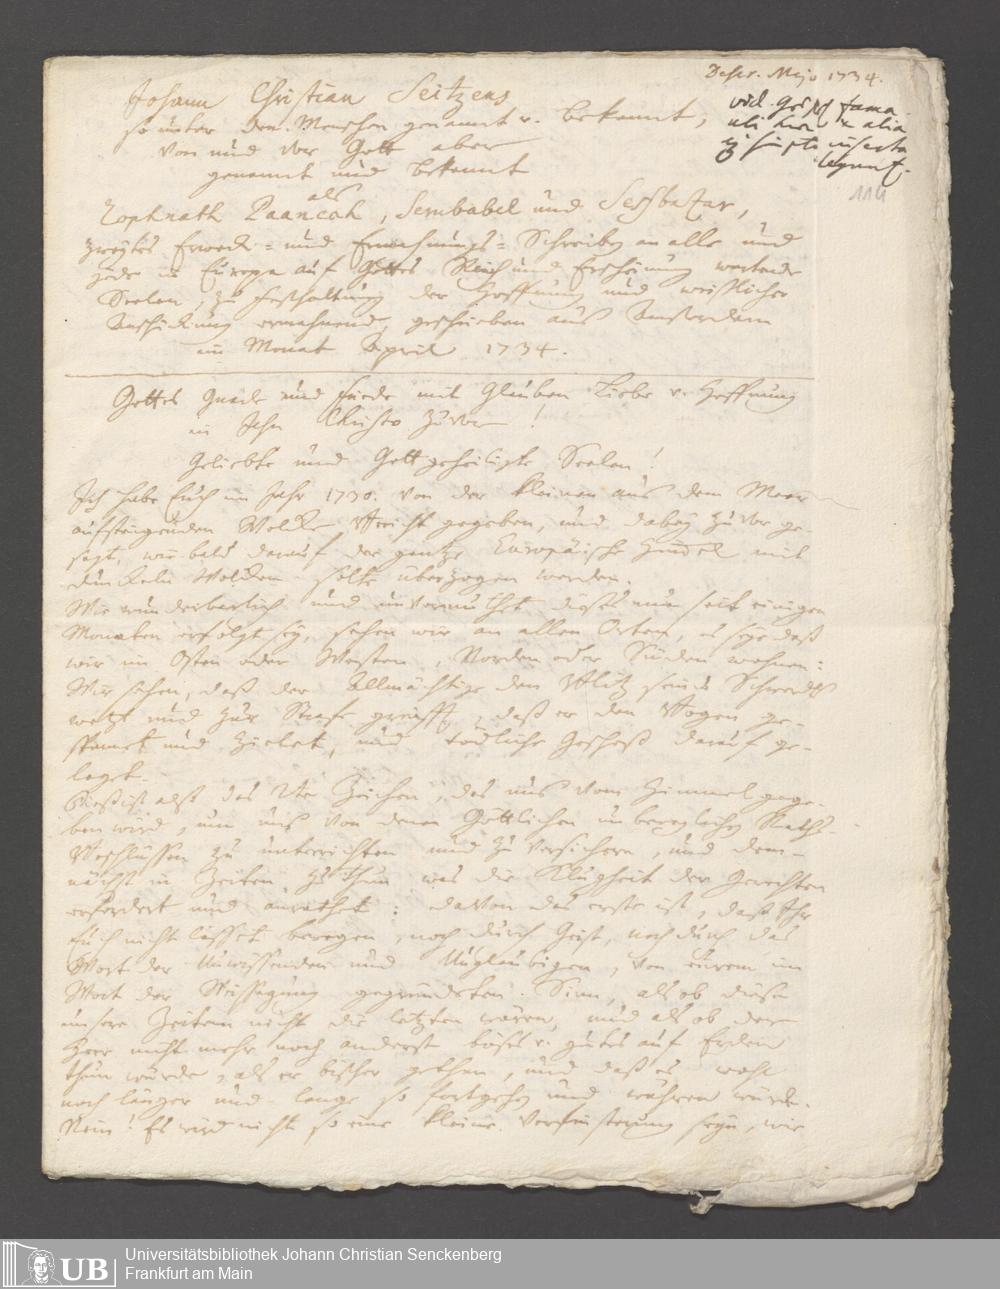 Descr. Majo 1734.
Johann Christian Seitzens
vid. Geistl. fama
so unter den Menschen genannt u. bekannt,
von und vor Gott aber
genannt und bekannt
114
als
Zophnath Paaneah, Serubabel und Sesbazar,
zweytes Erweck- und Ermahnungs-Schreiben an alle und
jede in Europa auf Gottes Reich und Erscheinung wartende
Seelen, zu Festhaltung der Hoffnung und weißlicher
Anschickung ermahnend, geschrieben aus Amsterdam
im Monat April 1734.
Gottes Gnade und Friede mit Glauben Liebe u. Hoffnung
in Jesu Christo zuvor!
Geliebte und Gott geheiligte Seelen!
Ich habe Euch im Jahr 1730. von der kleinen aus dem Meer
aufsteigenden Wolcke Bericht gegeben, und dabey zuvor ge-
sagt, wie bald darauf der gantze Europäische Himmel mit
dunckeln Wolcken solte überzogen werden.
Wie wunderbarlich und unvermuthet dieses nun seit einigen
Monaten erfolgt sey, sehen wir an allen Orten, es seye daß
wir in Osten oder Westen, Norden oder Süden wohnen:
Wir sehen, daß der Allmächtige den Blitz seines Schwerdts
wetzt und zur Strafe greifft, daß er den Bogen ge-
spannet und zielet, und tödliche Geschoß darauf ge-
leget.
Dieß ist also das 2te Zeichen, das uns vom Himmel gege-
ben wird, um uns von denen Göttlichen unbeweglichen Raths-
Beschlüssen zu unterrichten und zu versichern, und dem-
nächst in Zeiten zu thun was die Klugheit der Gerechten
erfordert und anrathet: davon das erste ist, daß Ihr
Euch nicht lasset bewegen, noch durch Geist, noch durch das
Wort der Unwissenden und Unglaubigen, von Eurem im
Wort der Weissagung gegründeten Sinn, als ob diese
unsere Zeiten nicht die letzten wären, und als ob der
Herr nicht mehr noch anderst böses u. gutes auf Erden
thun würde, als er bißher gethan, und daß es wohl
noch länger und lange so fortgehen und währen würde.
Nein! Es wird nicht so eine kleine Verfinsterung seyn, wie
Universitätsbibliothek Johann Christian Senckenberg
Frankfurt am Main
UB